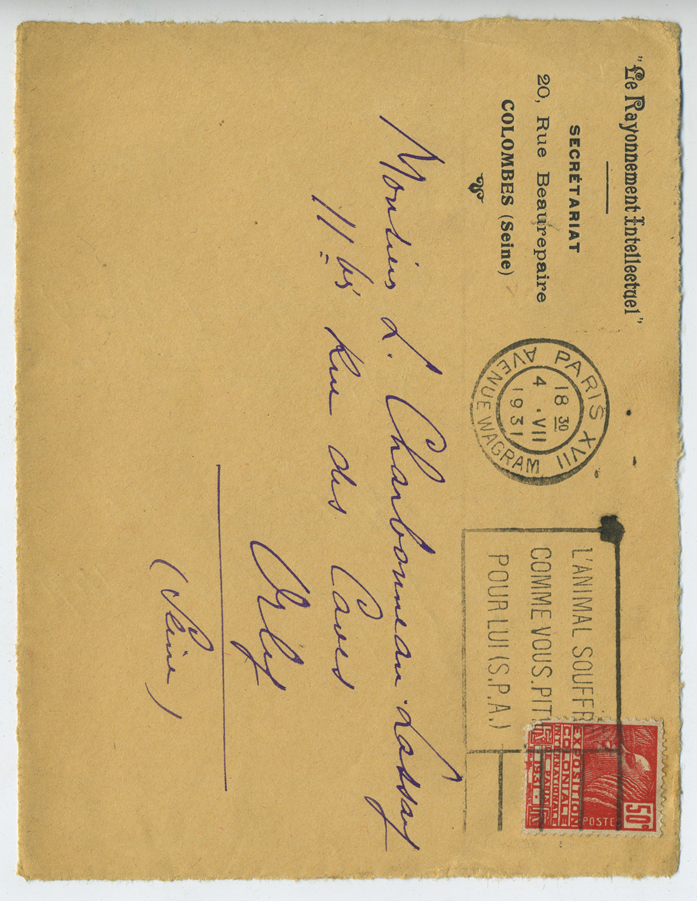 "Le Rayonnement Intellectuel"
SECRÉTARIAT
20, Rue Beaurepaire
COLOMBES (Seine)
PARIS XVII
18 30
4 . VII
1931
AVENUE WAGRAM
L'ANIMAL SOUFFR
COMME VOUS. PITI
POUR LUI (S.P.A.)
50c
POSTES
EXPOSITION
COLONIALE
INTERNATIONALE
PARIS
1931
Monsieur L. Charbonneau-Lassay
11 bis Rue des Caves
Orly
(Seine)